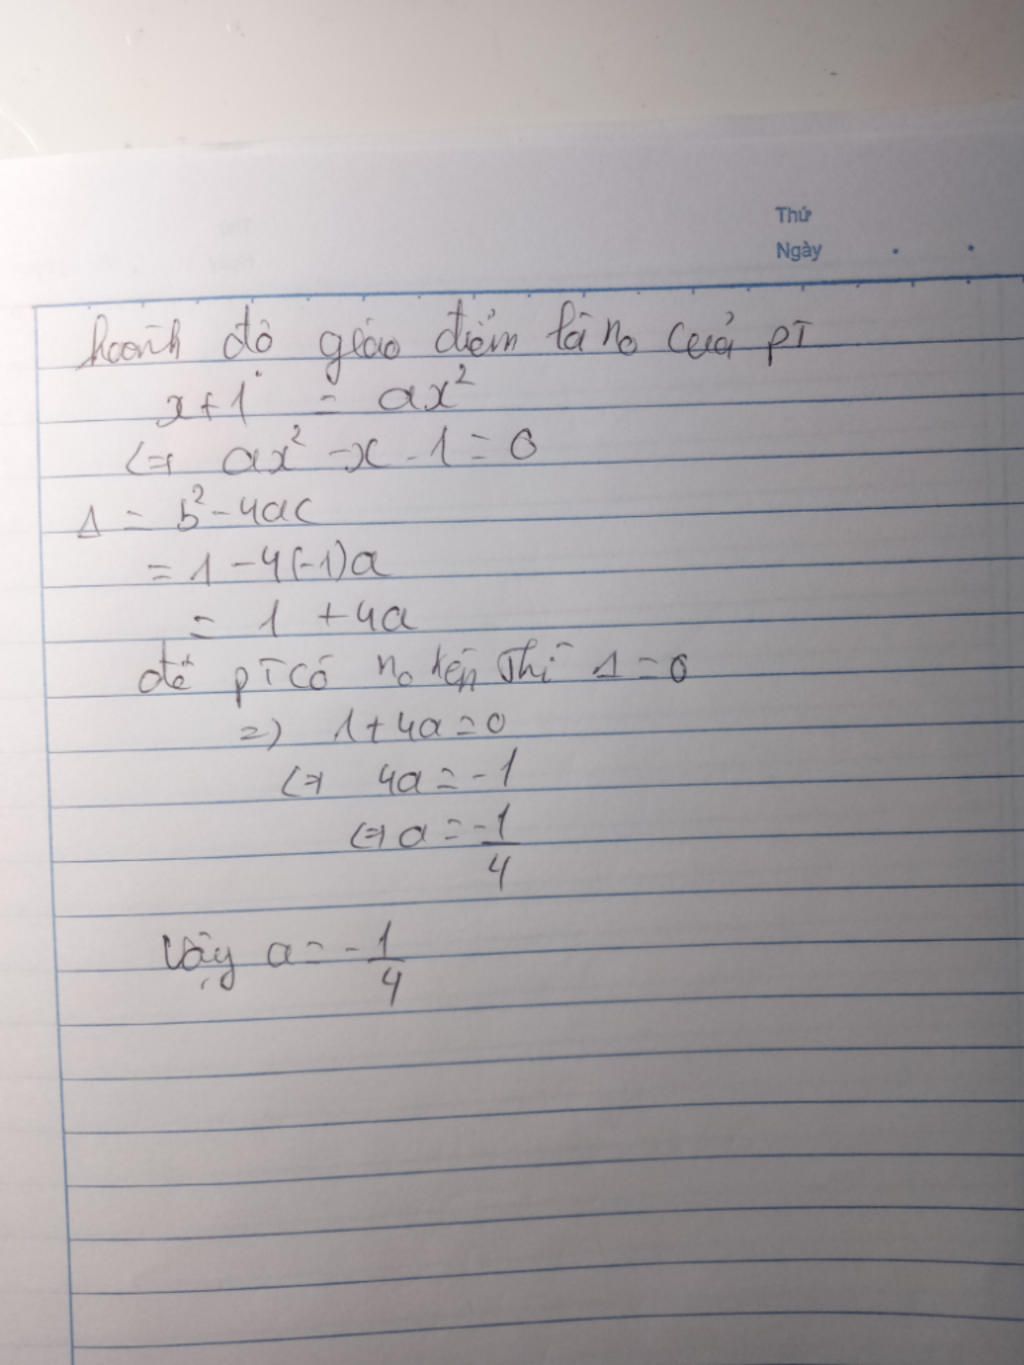 Thứ
Ngày
hoành độ giao điểm là no của pT
x+1 = ax²
<=> ax² -x -1 = 0
Δ = b² - 4ac
= 1 - 4(-1)a
= 1 + 4a
để pT có no kép thì Δ = 0
=) 1 + 4a = 0
<=> 4a = -1
<=> a = -1/4
Vậy a = -1/4